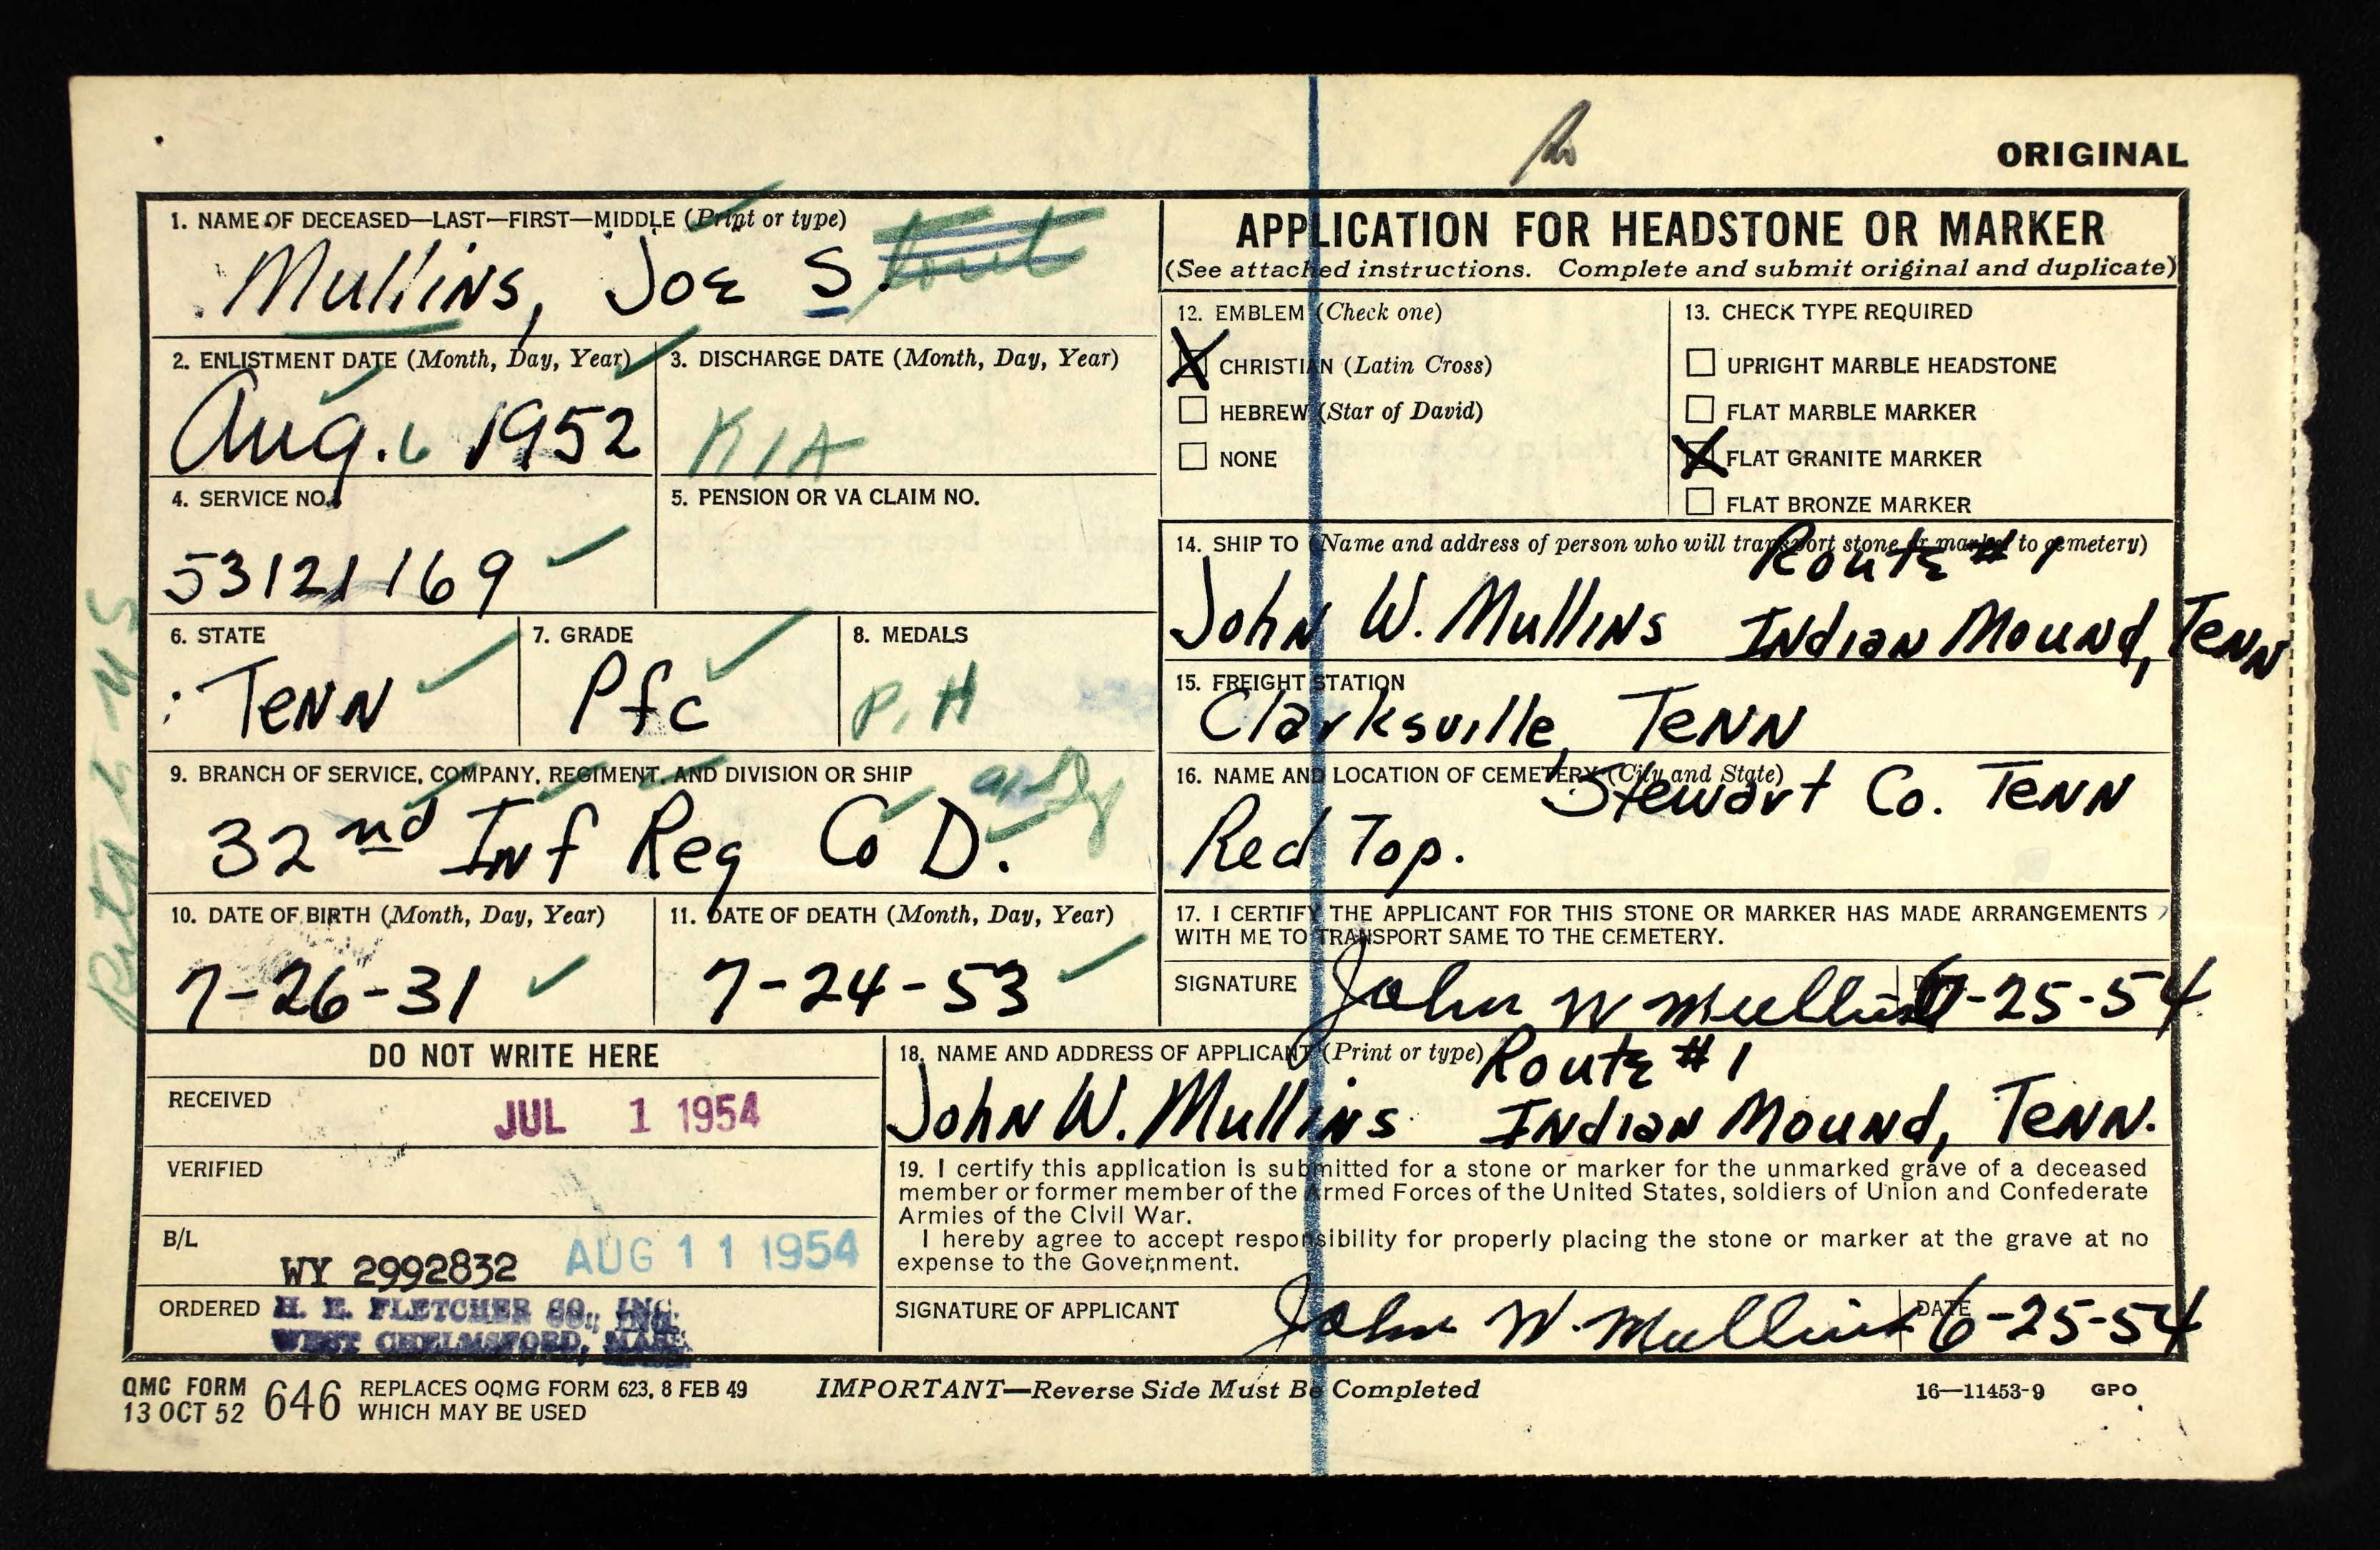 ORIGINAL
1. NAME OF DECEASED—LAST—FIRST—MIDDLE (Print or type)
Mullins, Joe S.
2. ENLISTMENT DATE (Month, Day, Year)
Aug. 6 1952
3. DISCHARGE DATE (Month, Day, Year)
KIA
4. SERVICE NO.
53121169
5. PENSION OR VA CLAIM NO.
6. STATE
Tenn
7. GRADE
Pfc
8. MEDALS
P.H
9. BRANCH OF SERVICE, COMPANY, REGIMENT, AND DIVISION OR SHIP
32nd Inf Reg Co D.
10. DATE OF BIRTH (Month, Day, Year)
7-26-31
11. DATE OF DEATH (Month, Day, Year)
7-24-53
APPLICATION FOR HEADSTONE OR MARKER
(See attached instructions. Complete and submit original and duplicate)
12. EMBLEM (Check one)
X CHRISTIAN (Latin Cross)
HEBREW (Star of David)
NONE
13. CHECK TYPE REQUIRED
UPRIGHT MARBLE HEADSTONE
FLAT MARBLE MARKER
X FLAT GRANITE MARKER
FLAT BRONZE MARKER
14. SHIP TO (Name and address of person who will transport stone or marker to cemetery)
Route # 1
John W. Mullins Indian Mound, Tenn
15. FREIGHT STATION
Clarksville, Tenn
16. NAME AND LOCATION OF CEMETERY (City and State)
Stewart Co. Tenn
Red Top.
17. I CERTIFY THE APPLICANT FOR THIS STONE OR MARKER HAS MADE ARRANGEMENTS
WITH ME TO TRANSPORT SAME TO THE CEMETERY.
SIGNATURE John W Mullins 6-25-54
DO NOT WRITE HERE
RECEIVED JUL 1 1954
VERIFIED
B/L WY 2992832 AUG 11 1954
ORDERED H. E. FLETCHER CO., INC.
WEST CHELMSFORD, MASS.
18. NAME AND ADDRESS OF APPLICANT (Print or type)
Route # 1
John W. Mullins Indian Mound, Tenn.
19. I certify this application is submitted for a stone or marker for the unmarked grave of a deceased
member or former member of the Armed Forces of the United States, soldiers of Union and Confederate
Armies of the Civil War.
I hereby agree to accept responsibility for properly placing the stone or marker at the grave at no
expense to the Government.
SIGNATURE OF APPLICANT John W. Mullins DATE 6-25-54
QMC FORM 646 REPLACES OQMG FORM 623, 8 FEB 49
13 OCT 52 WHICH MAY BE USED
IMPORTANT—Reverse Side Must Be Completed
16—11453-9 GPO